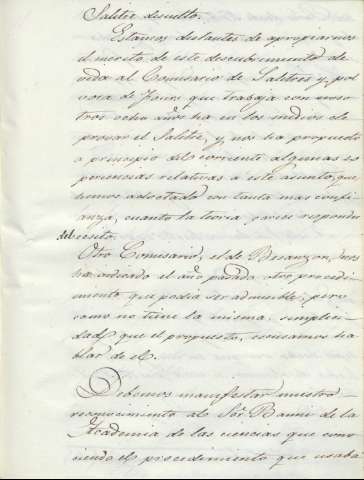 Salitre disuelto.
Estamos distantes de apropiarnos
el mérito de este descubrimiento de
vida al Comisario de Salitres y pol
vora de Tours que trabaja con noso
tros ocho años ha en los medios de
provar el Salitre, y nos ha propuesto
a principio del corriente algunas es
periencias relativas a este asunto, que
hemos adoptado con tanta mas confi
anza, cuanto la teoria parece responder
del exsito.
Otro Comisario, el de Besanzon, nos
ha indicado el año pasado otro procedi
miento que podia ser admisible; pero
como no tiene la misma simplici
dad que el propuesto, escusamos ha
blar de el.
Debemos manifestar nuestro
reconocimiento al Sor. Baumé de la
Academia de las ciencias que cono
ciendo el procedimiento que usaba